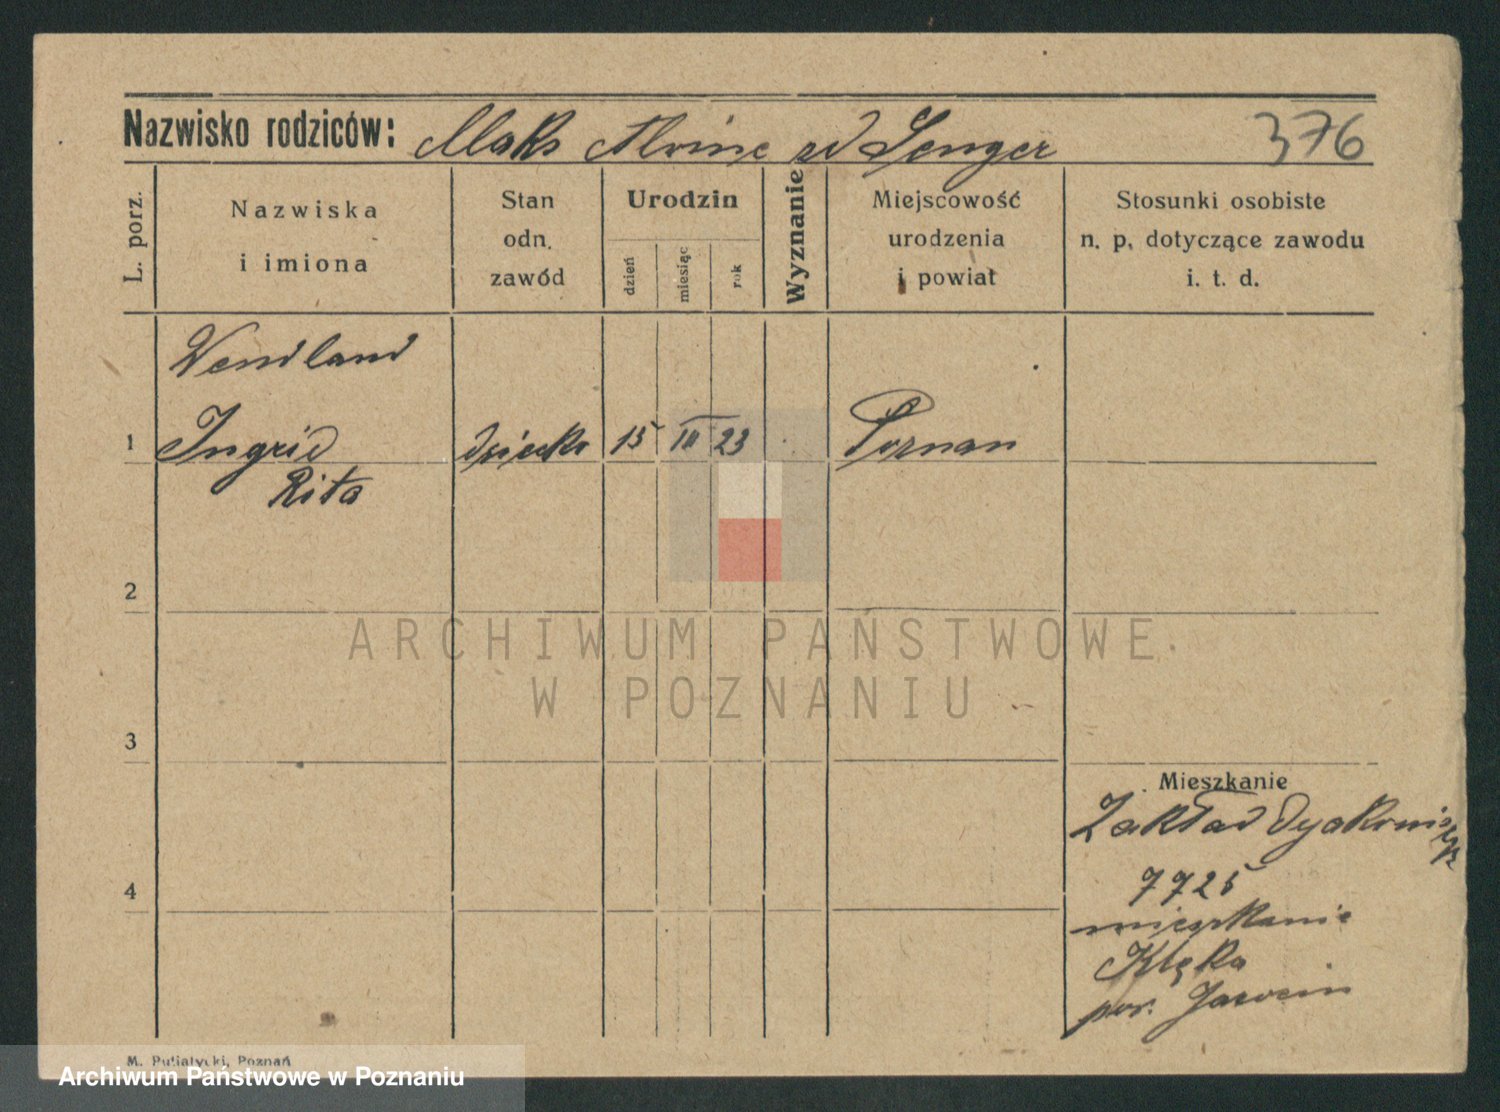 Nazwisko rodziców: Maks Alvine zd Senger 376
L. porz.
Nazwiska
i imiona
Stan
odn.
zawód
Urodzin
dzień
miesiąc
rok
Wyznanie
Miejscowość
urodzenia
i powiat
Stosunki osobiste
n. p. dotyczące zawodu
i. t. d.
Wendland
1 Ingrid dziecko 15 III 23 Poznan
Rita
2
ARCHIWUM PAŃSTWOWE
W POZNANIU
3
Mieszkanie
Zakład Dyakonis
4
7725
mieszkanie
Klęka
pow. Jarocin
M. Putiatycki, Poznań
Archiwum Państwowe w Poznaniu